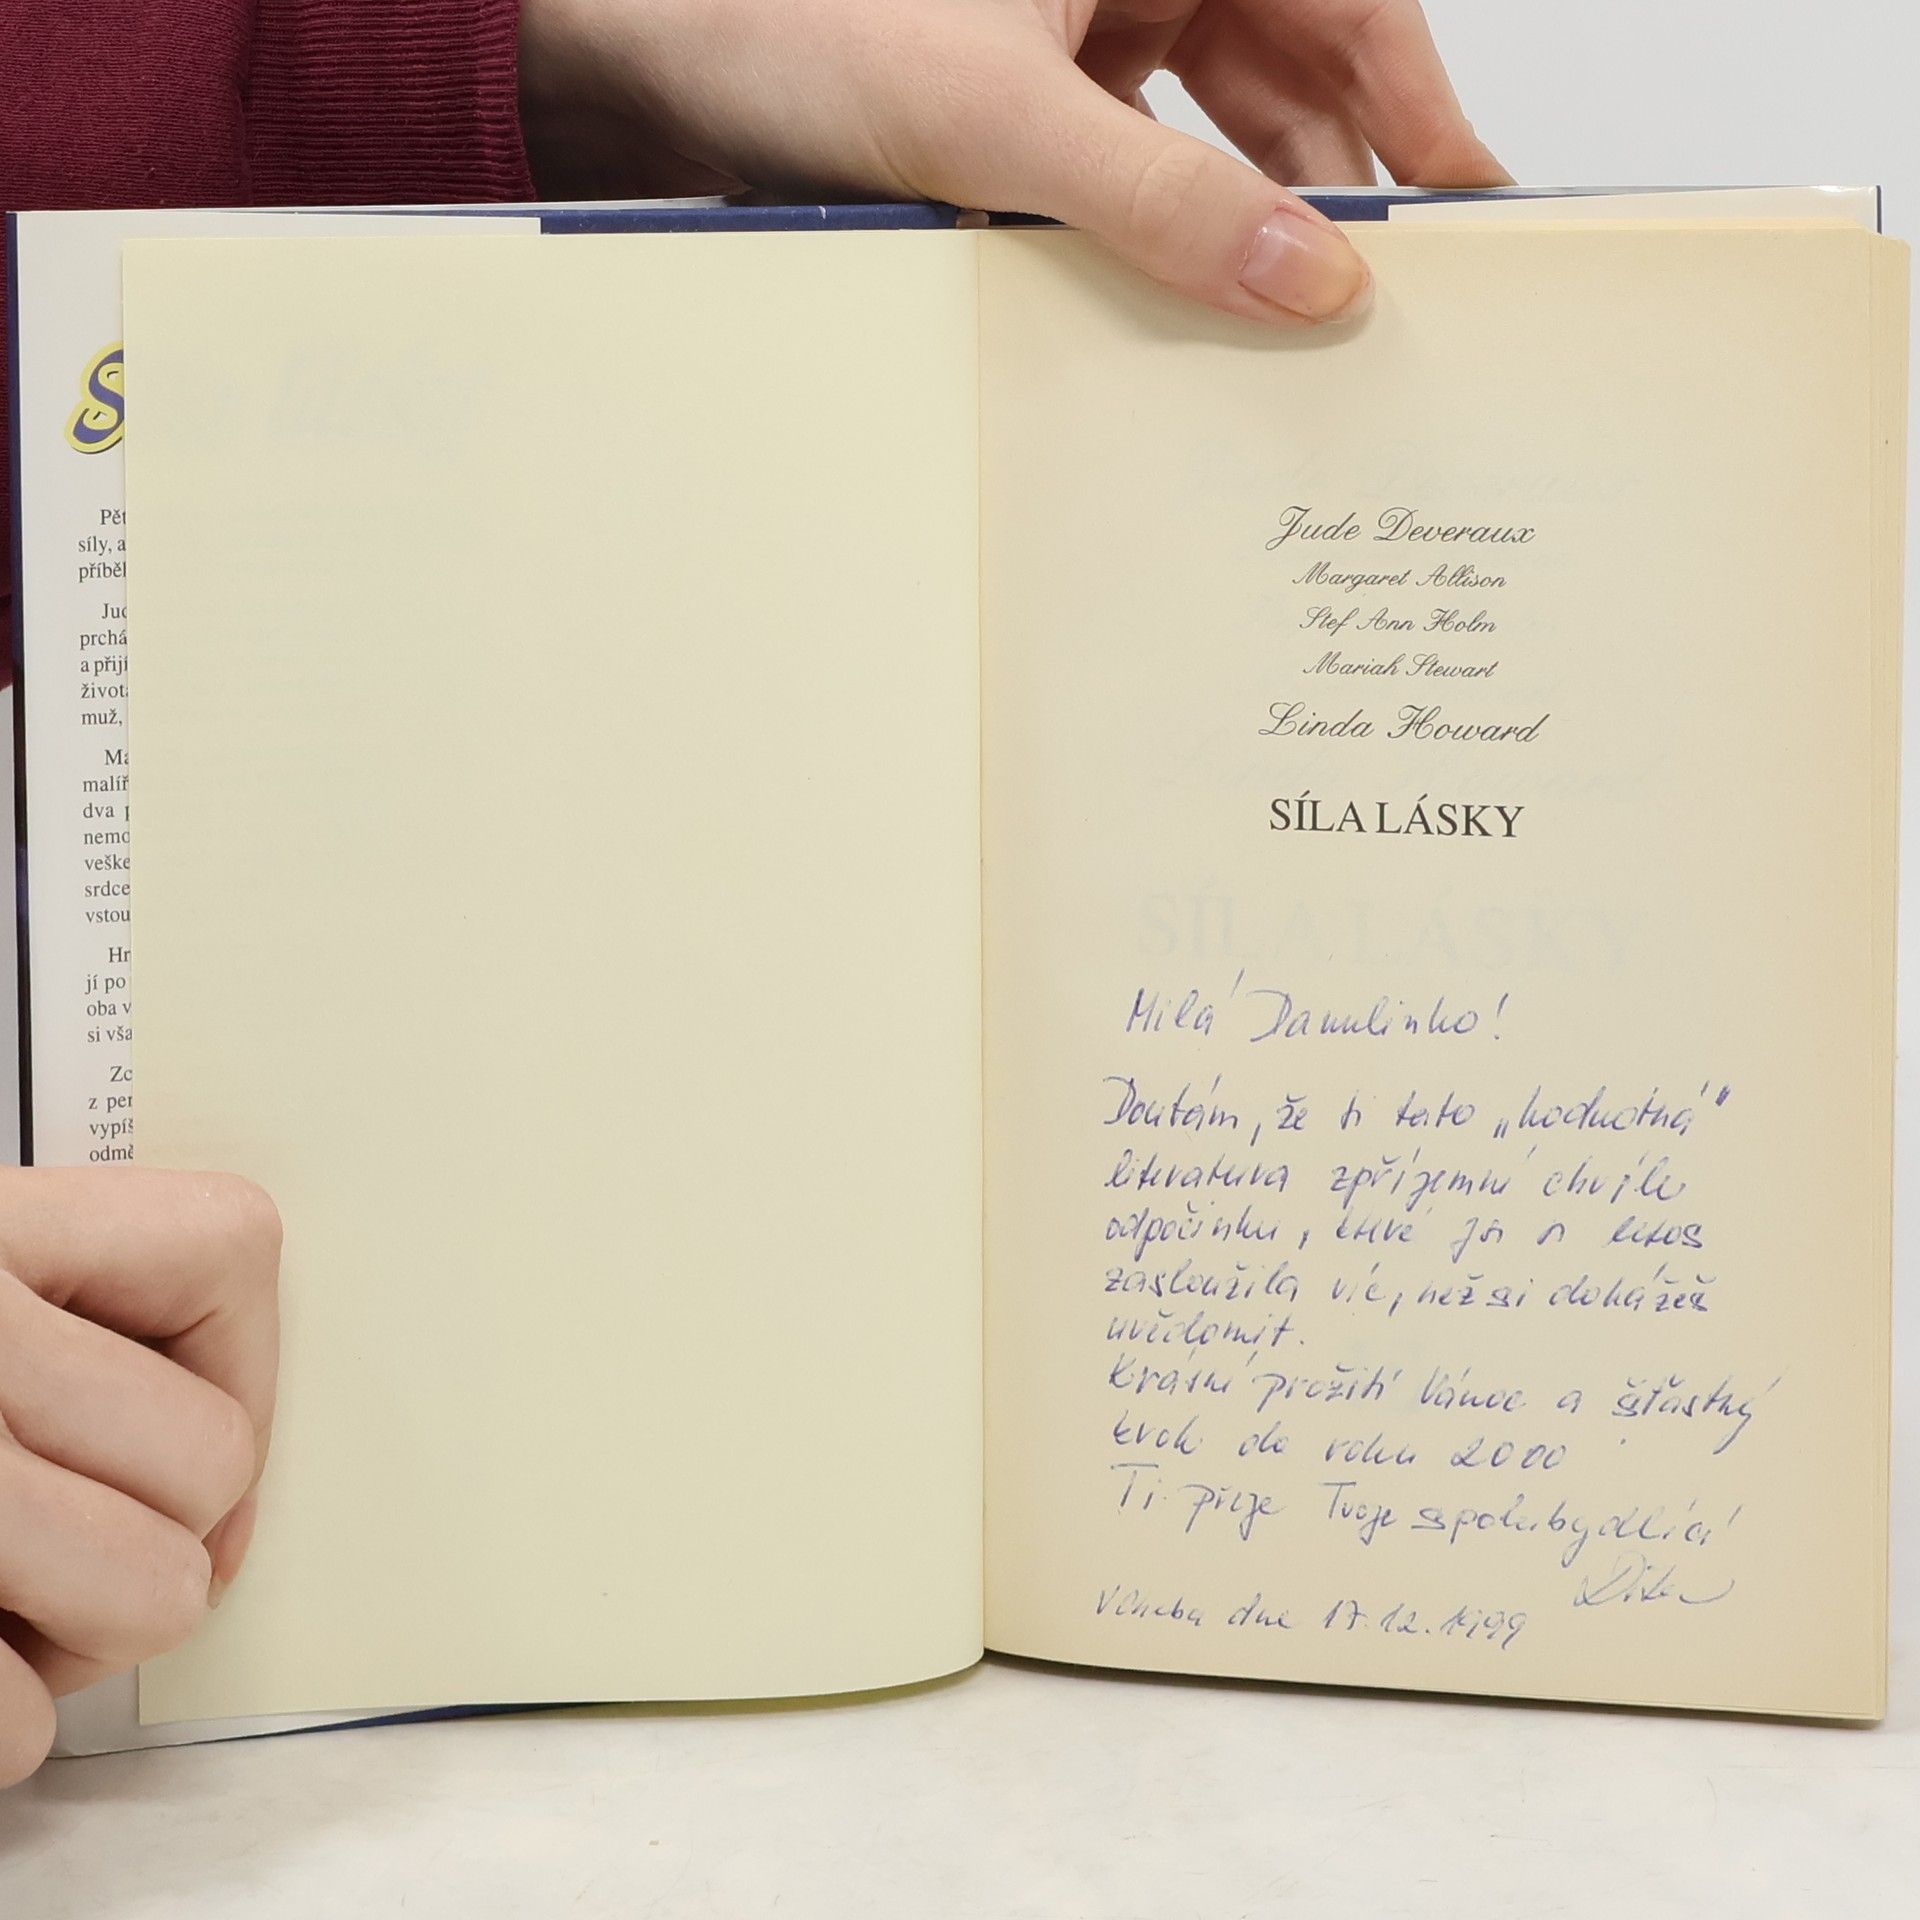 S
Pět
síly, a
příběh
Jud
prchá
a přijí
život
muž,
Ma
malíř
dva p
nemo
veške
srdce
vstou
Hr
jí po
oba v
si vša
Zc
z per
vypíš
odmě
Jude Deveraux
Margaret Allison
Stef Ann Holm
Mariah Stewart
Linda Howard
SÍLA LÁSKY
Milá Danulinko!
Doufám, že ti tato „hodnotná"
literatura zpříjemní chvíle
odpočinku, které jsi si letos
zasloužila víc, než si dokážeš
uvědomit.
Krásné prožití Vánoc a šťastný
krok do roku 2000
Ti přeje Tvoje spolubydlící
Dita
V Chebu dne 17.12.1999